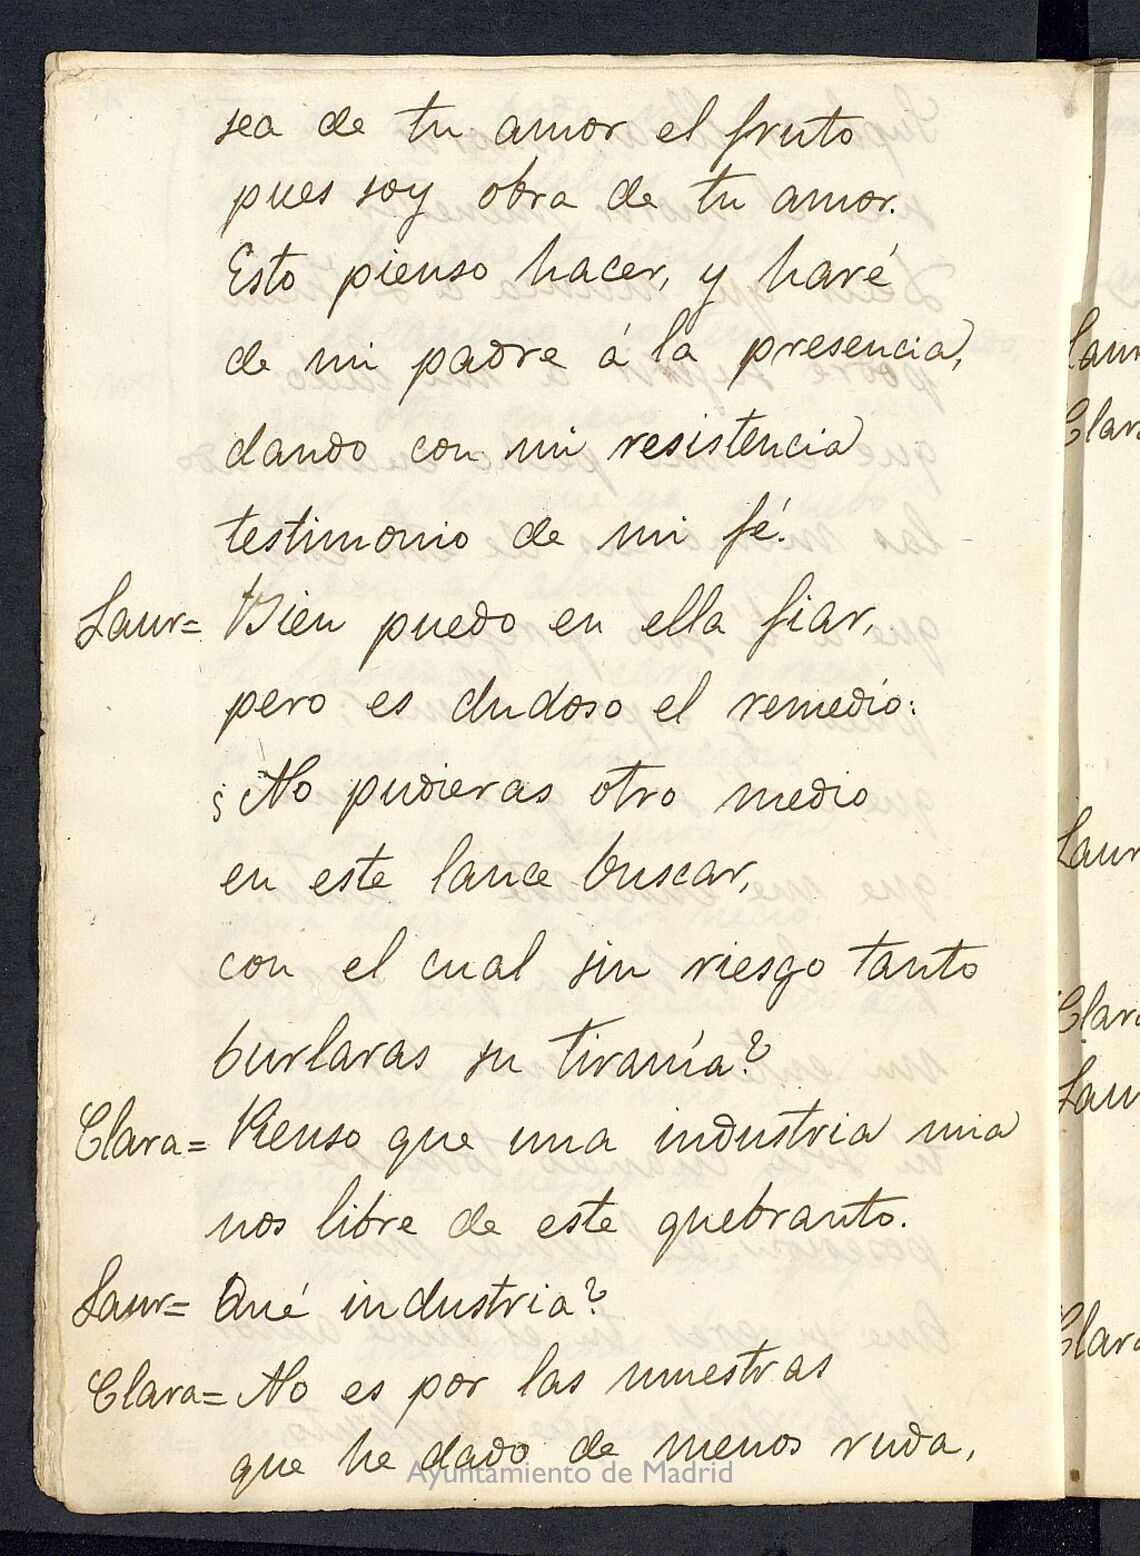 sea de tu amor el fruto
pues soy obra de tu amor.
Esto pienso hacer, y haré
de mi padre á la presencia,
dando con mi resistencia
testimonio de mi fé.
Laur= Bien puedo en ella fiar,
pero es dudoso el remedio:
¿No pudieras otro medio
en este lance buscar,
con el cual sin riesgo tanto
burlaras su tiranía?
Clara= Pienso que una industria mia
nos libre de este quebranto.
Laur= Qué industria?
Clara= No es por las muestras
que he dado de menos ruda,
Ayuntamiento de Madrid
Laur
Clara
Laur
Clara
Laur
Clara